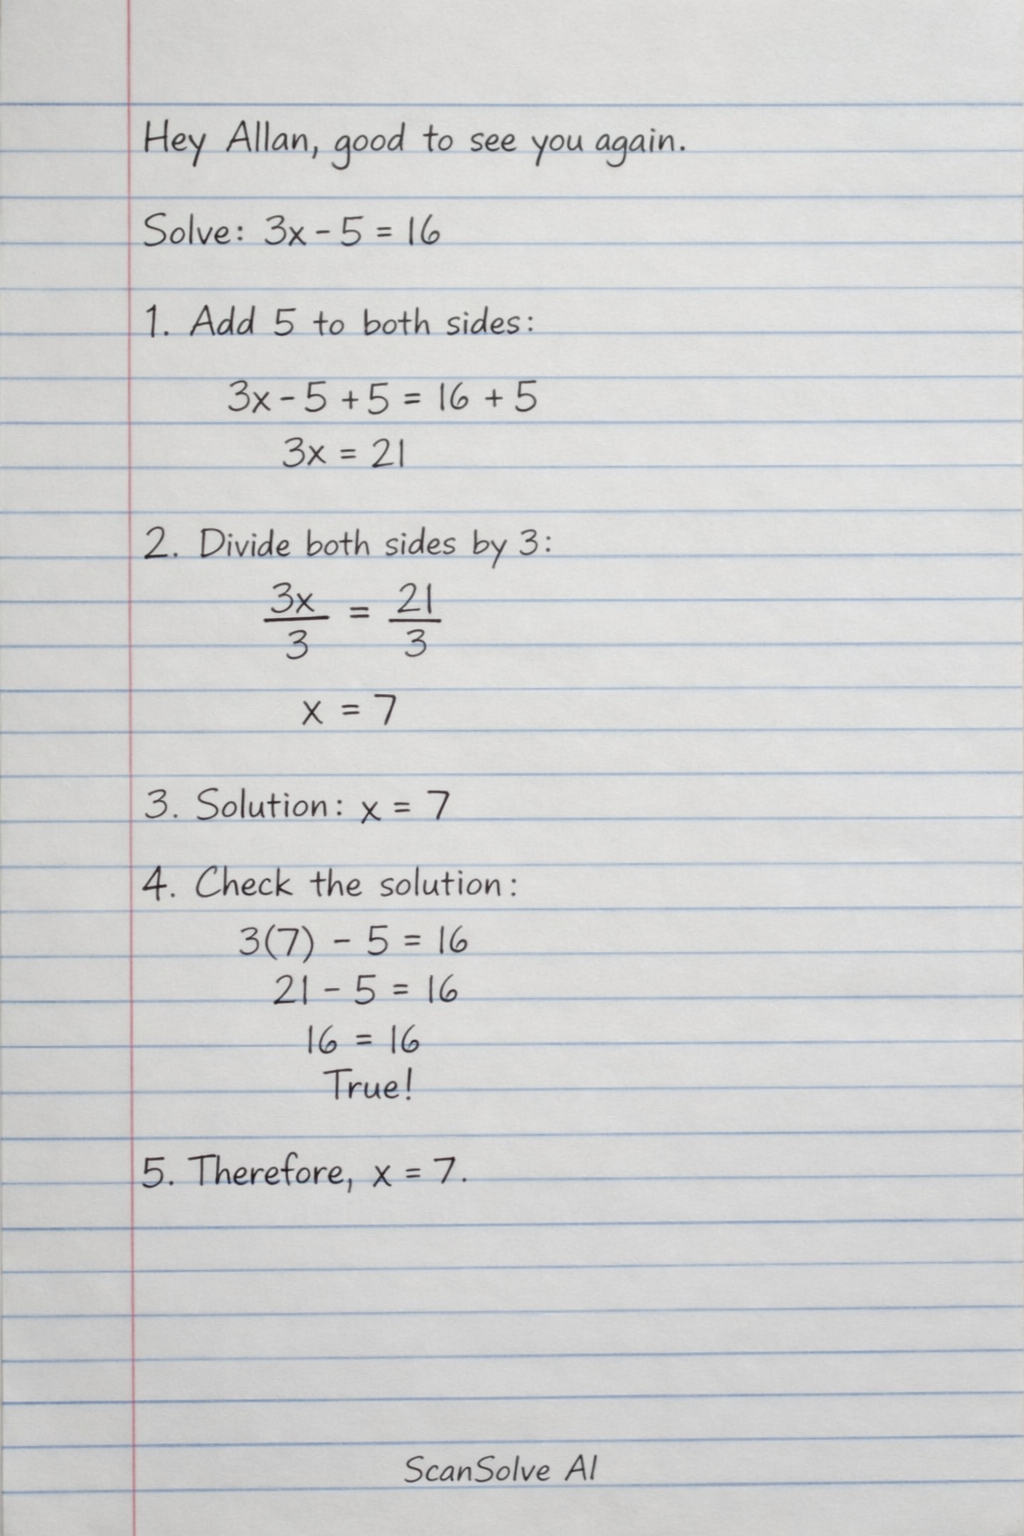 Hey Allan, good to see you again.
Solve: 3x - 5 = 16
1. Add 5 to both sides:
3x - 5 + 5 = 16 + 5
3x = 21
2. Divide both sides by 3:
3x/3 = 21/3
x = 7
3. Solution: x = 7
4. Check the solution:
3(7) - 5 = 16
21 - 5 = 16
16 = 16
True!
5. Therefore, x = 7.
ScanSolve AI